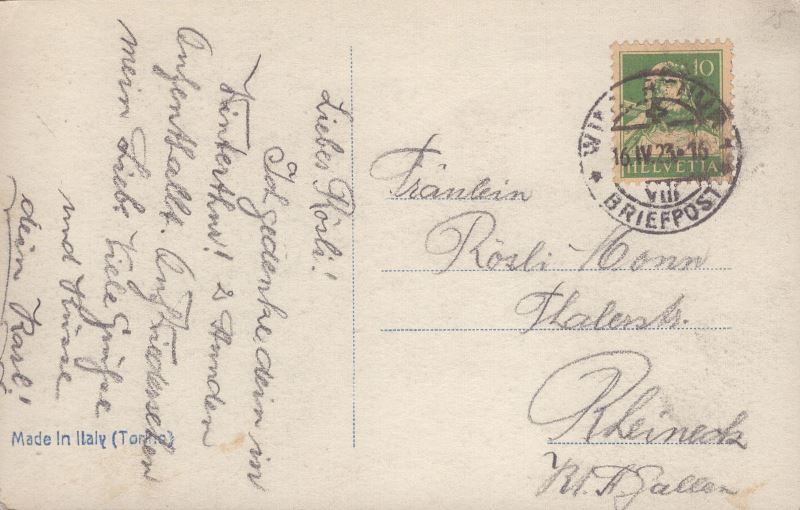 Liebes Rösli!
Ich gedenke dein in
Winterthur! 2 Stunden
Aufenthallt. Auf Wiedersehen
mein Liebe Viele Grüsse
und Küsse
dein Karl!
Made in Italy (Torino)
10
HELVETIA
WINTERTHUR
16.IV.23-16
VIII
BRIEFPOST
Fräulein
Rösli Monn
Thalerstr.
Rheineck
Kt. St Gallen
25